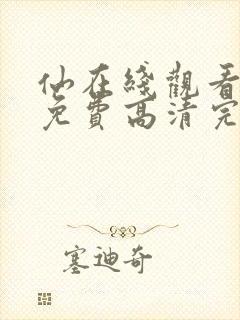 仙在綫觀看
免費高清完
塞迪奇